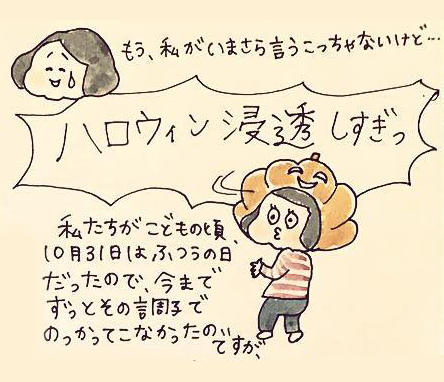 もう、私がいまさら言うこっちゃないけど…
ハロウィン浸透しすぎっ
私たちがこどもの頃、
10月31日はふつうの日
だったので、今まで
ずっとその調子で
のっかってこなかったの
ですが、